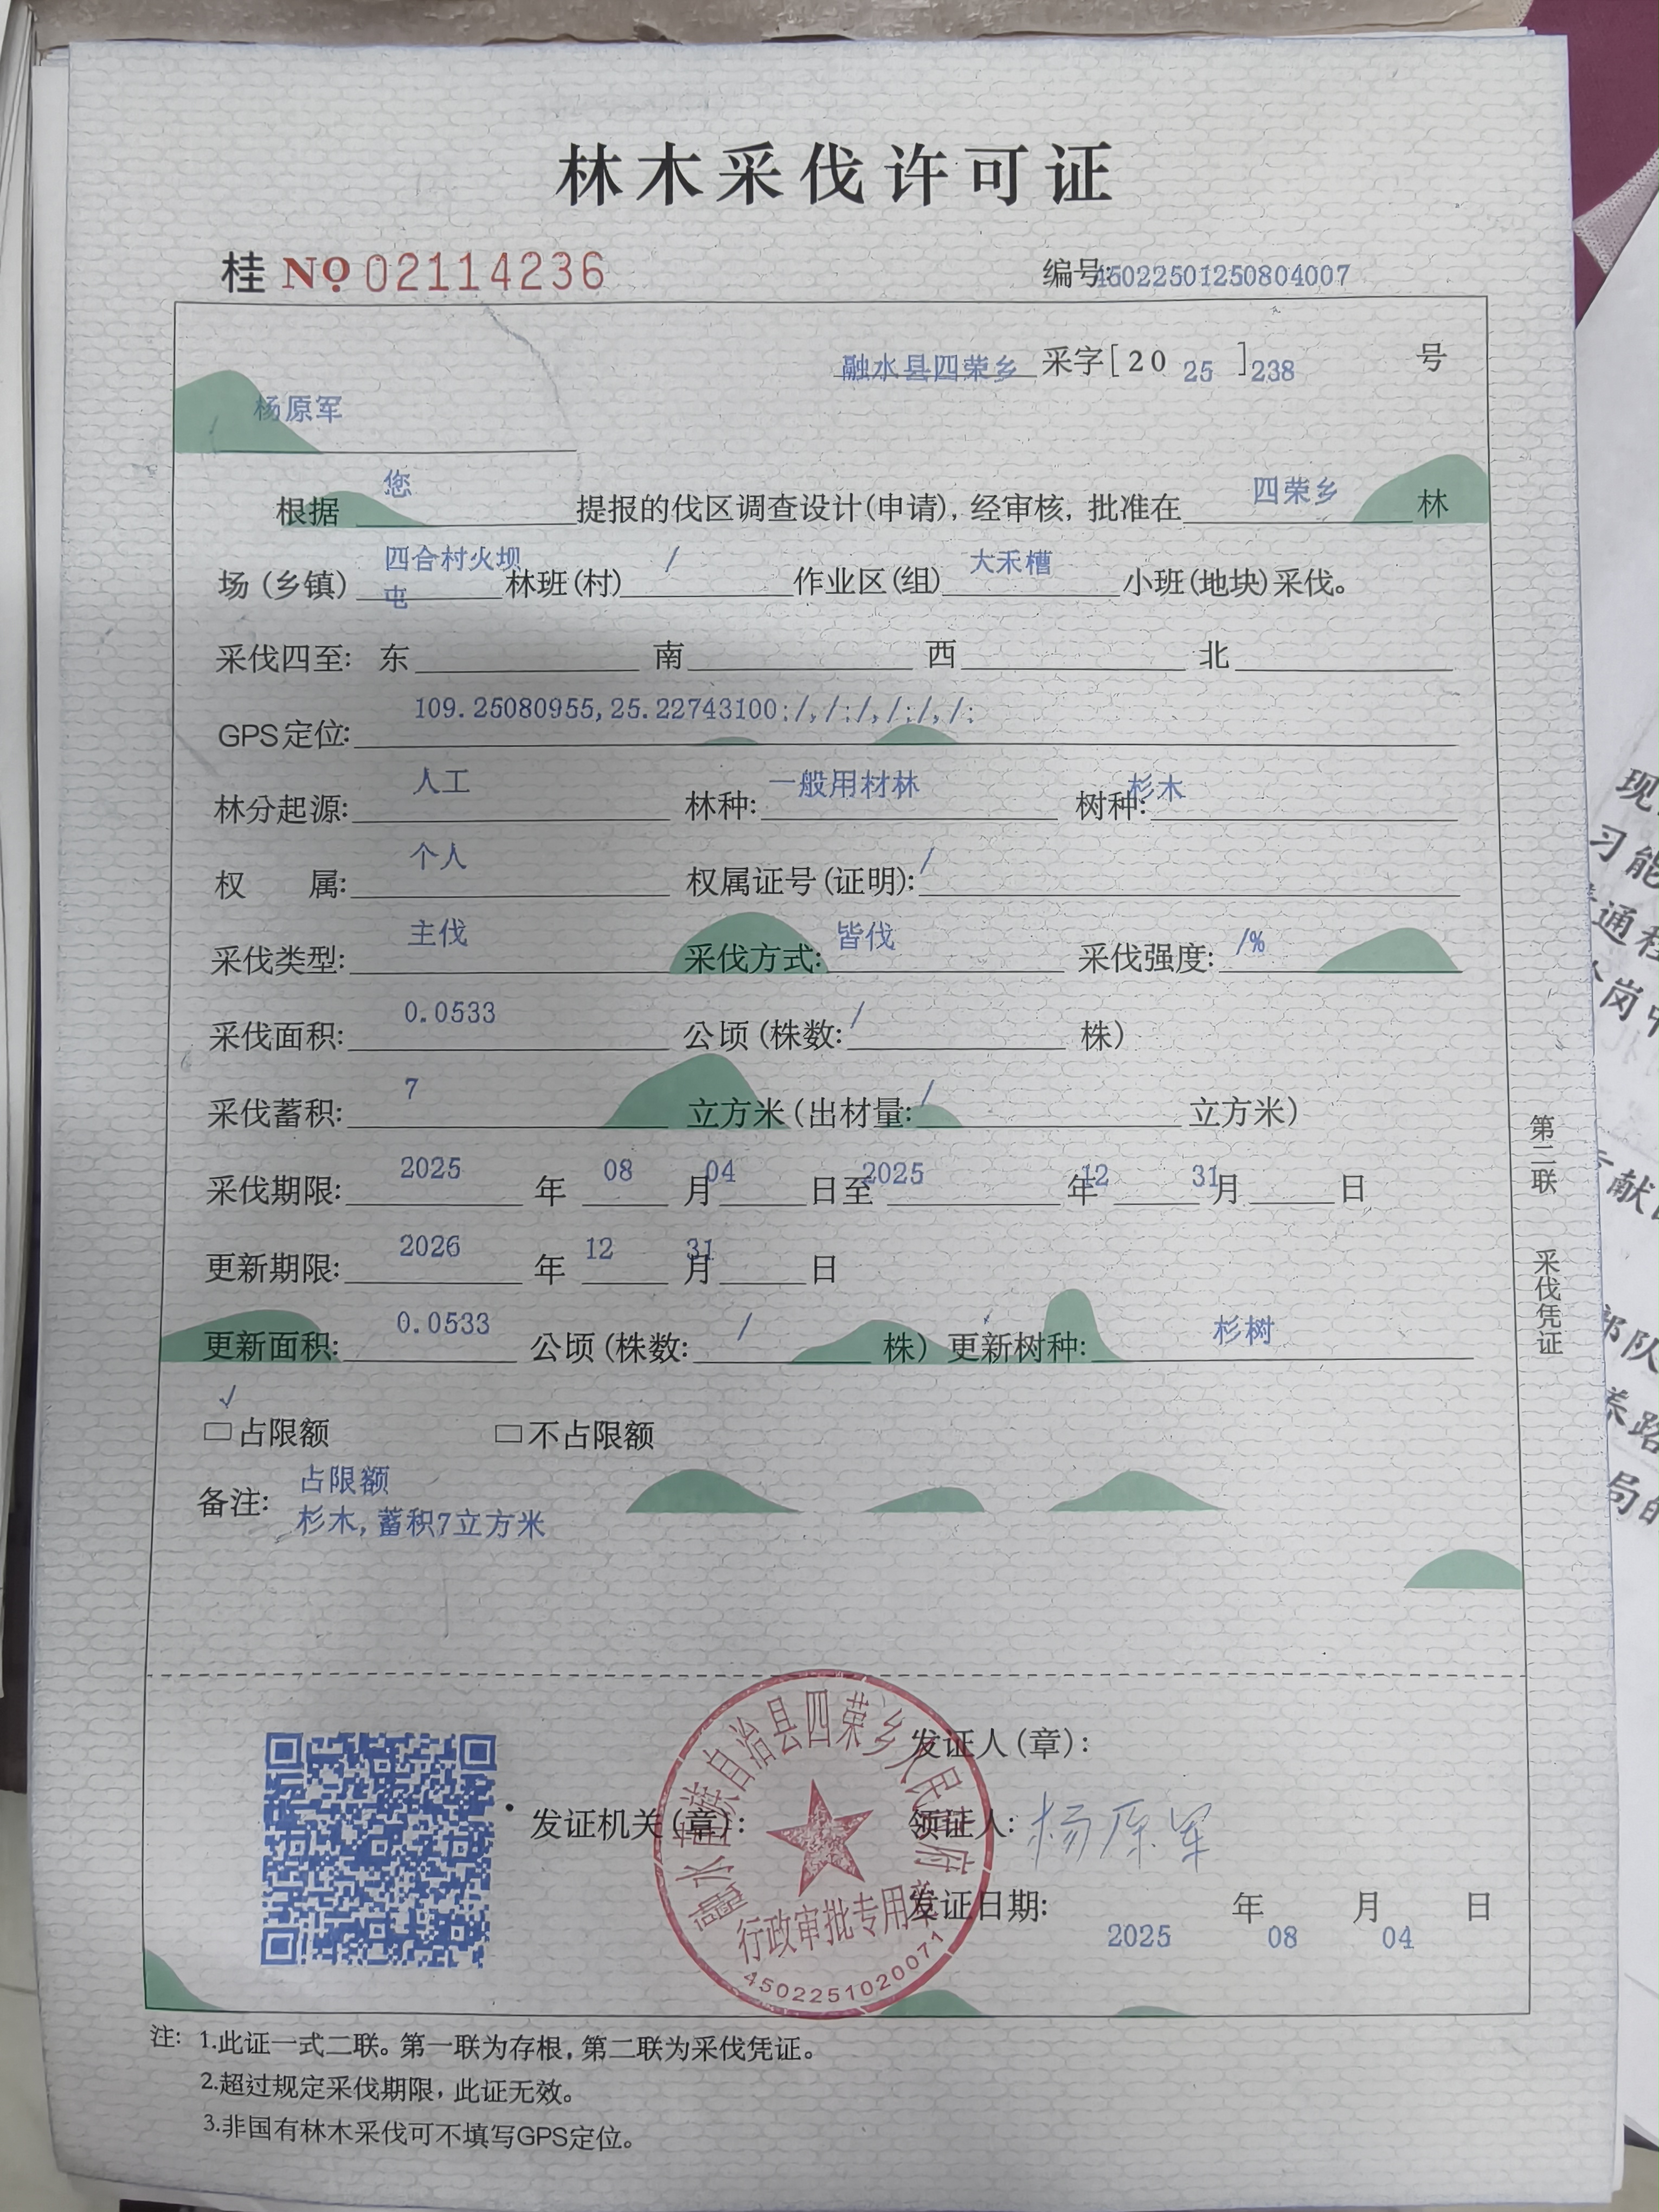 林木采伐许可证
桂 №02114236 编号:45022501250804007
融水县四荣乡 采字[2025]238 号
杨原军
根据 您 提报的伐区调查设计(申请),经审核,批准在 四荣乡 林
场(乡镇) 四合村火坝屯 林班(村) / 作业区(组) 大禾槽 小班(地块)采伐。
采伐四至: 东 南 西 北
GPS定位: 109.25080955,25.22743100;/,/;/,/;/,/;
林分起源: 人工 林种: 一般用材林 树种: 杉木
权 属: 个人 权属证号(证明): /
采伐类型: 主伐 采伐方式: 皆伐 采伐强度: /%
采伐面积: 0.0533 公顷(株数: / 株)
采伐蓄积: 7 立方米(出材量: / 立方米)
采伐期限: 2025 年 08 月 04 日至 2025 年 12 月 31 日
更新期限: 2026 年 12 月 31 日
更新面积: 0.0533 公顷(株数: / 株) 更新树种: 杉树
√
□占限额 □不占限额
备注: 占限额
杉木,蓄积7立方米
第二联 采伐凭证
发证人(章):
发证机关(章):
领证人: 杨原军
发证日期: 2025 年 08 月 04 日
融水苗族自治县四荣乡人民政府
行政审批专用章
4502251020071
注: 1.此证一式二联。第一联为存根,第二联为采伐凭证。
2.超过规定采伐期限,此证无效。
3.非国有林木采伐可不填写GPS定位。